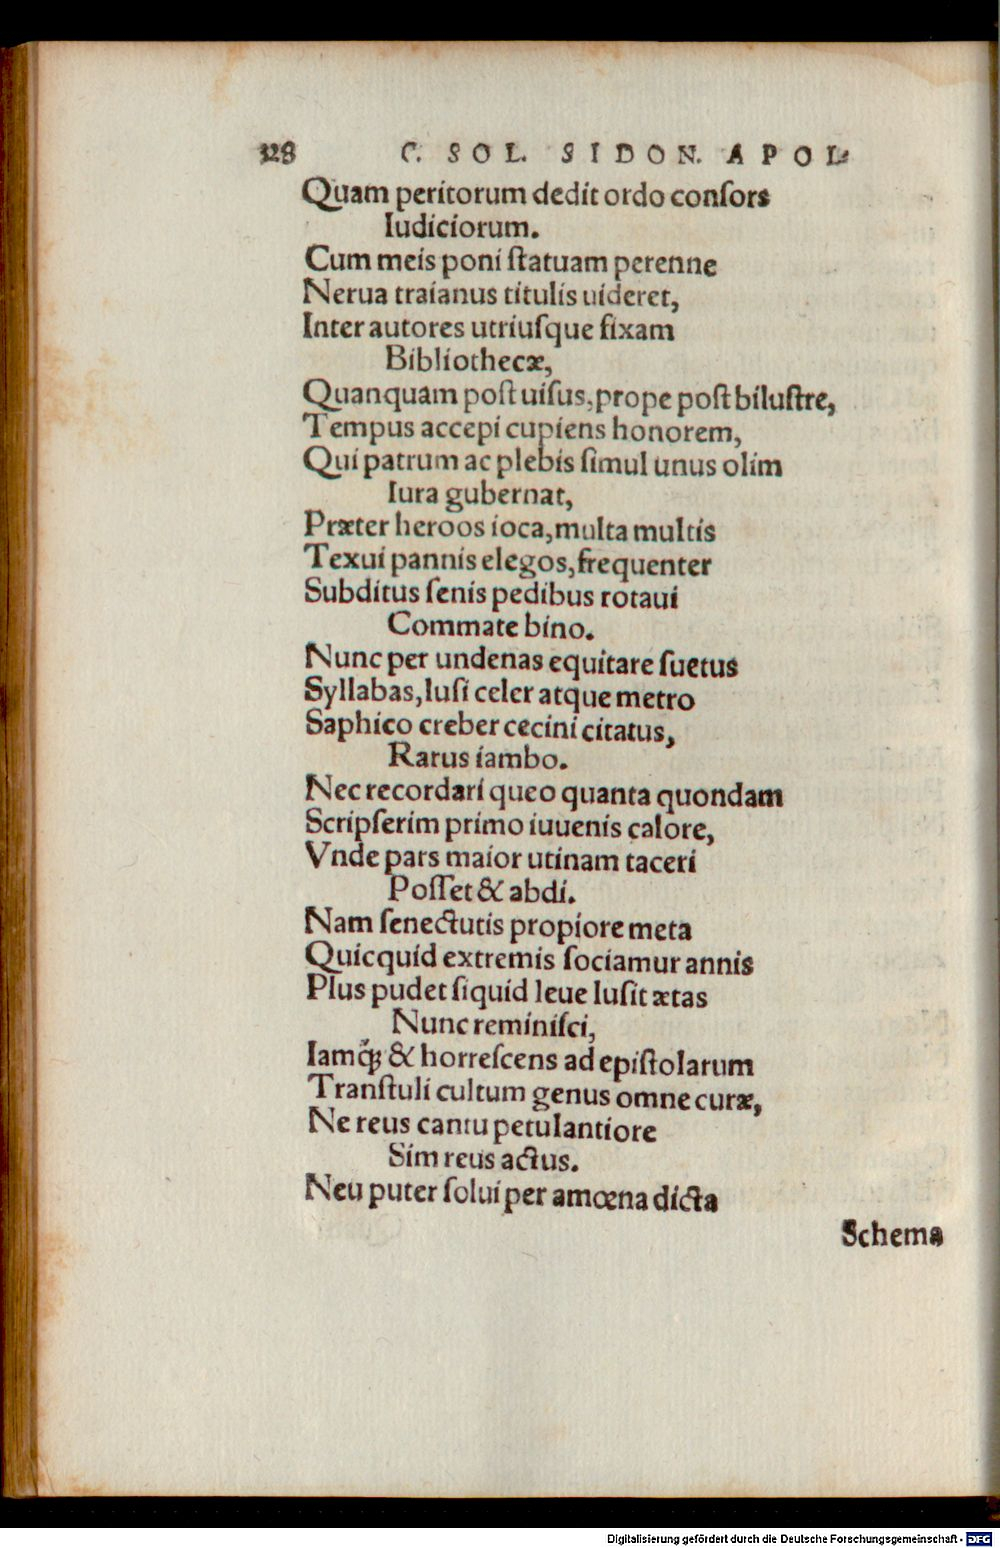 328 C. SOL. SIDON. APOL.
Quam peritorum dedit ordo conſors
Iudiciorum.
Cum meis poni ſtatuam perenne
Nerua traianus titulis uideret,
Inter autores utriuſque fixam
Bibliothecæ,
Quanquam poſt uiſus, prope poſt biluſtre,
Tempus accepi cupiens honorem,
Qui patrum ac plebis ſimul unus olim
Iura gubernat,
Præter heroos ioca, multa multis
Texui pannis elegos, frequenter
Subditus ſenis pedibus rotaui
Commate bino.
Nunc per undenas equitare ſuetus
Syllabas, luſi celer atque metro
Saphico creber cecini citatus,
Rarus iambo.
Nec recordari queo quanta quondam
Scripſerim primo iuuenis calore,
Vnde pars maior utinam taceri
Poſſet & abdi.
Nam ſenectutis propiore meta
Quicquid extremis ſociamur annis
Plus pudet ſiquid leue luſit ætas
Nunc reminiſci,
Iamq́ꝫ & horreſcens ad epiſtolarum
Tranſtuli cultum genus omne curæ,
Ne reus cantu petulantiore
Sim reus actus.
Neu puter ſolui per amœna dicta
Schema
Digitalisierung gefördert durch die Deutsche Forschungsgemeinschaft - DFG